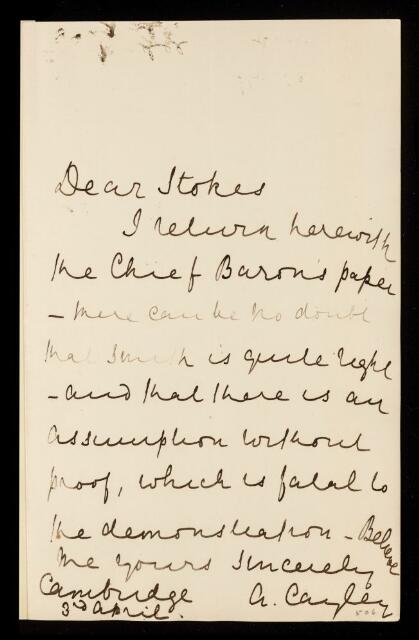 Dear Stokes
I return herewith
the Chief Baron's paper
- there can be no doubt
that Smith is quite right
- and that there is an
assumption without
proof, which is fatal to
the demonstration - Believe
me yours sincerely
Cambridge A. Cayley
3d April.